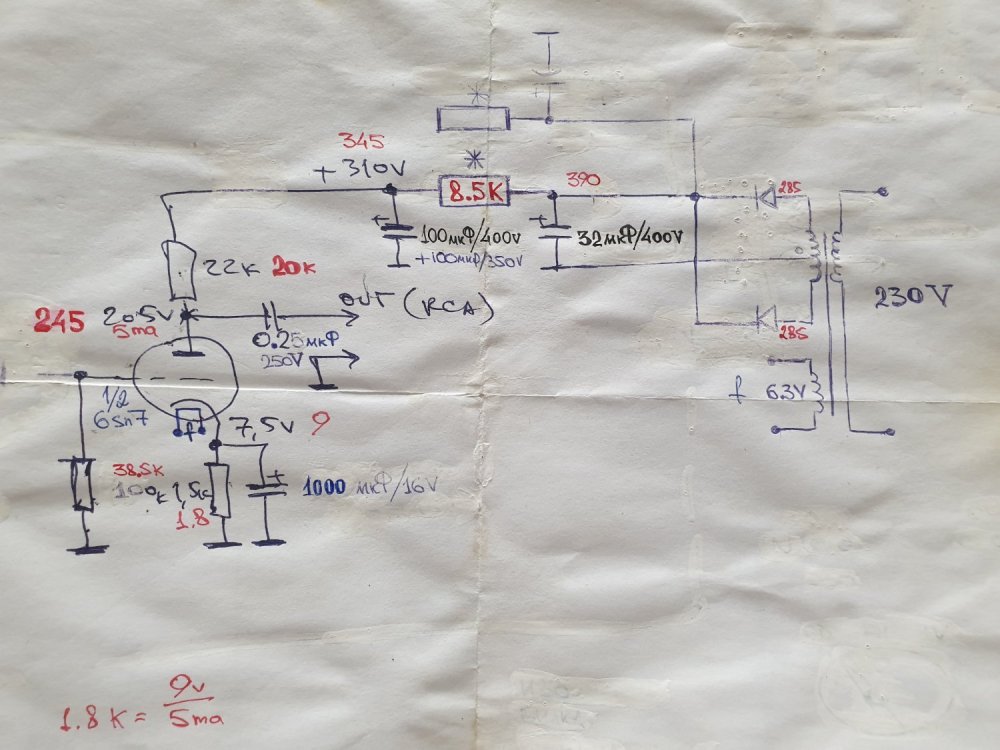 *
*
345
+310V
8.5K
390
285
100мкФ/400V
+100мкФ/350V
32мкФ/400V
22к 20к
OUT (RCA)
230V
245 205V
5ma
0.25мкФ
250V
285
1/2
6sn7
f 6.3V
f
7,5V 9
38.5K
100к 1,5к
1.8
1000 мкФ/16V
1.8K = 9v
5ma